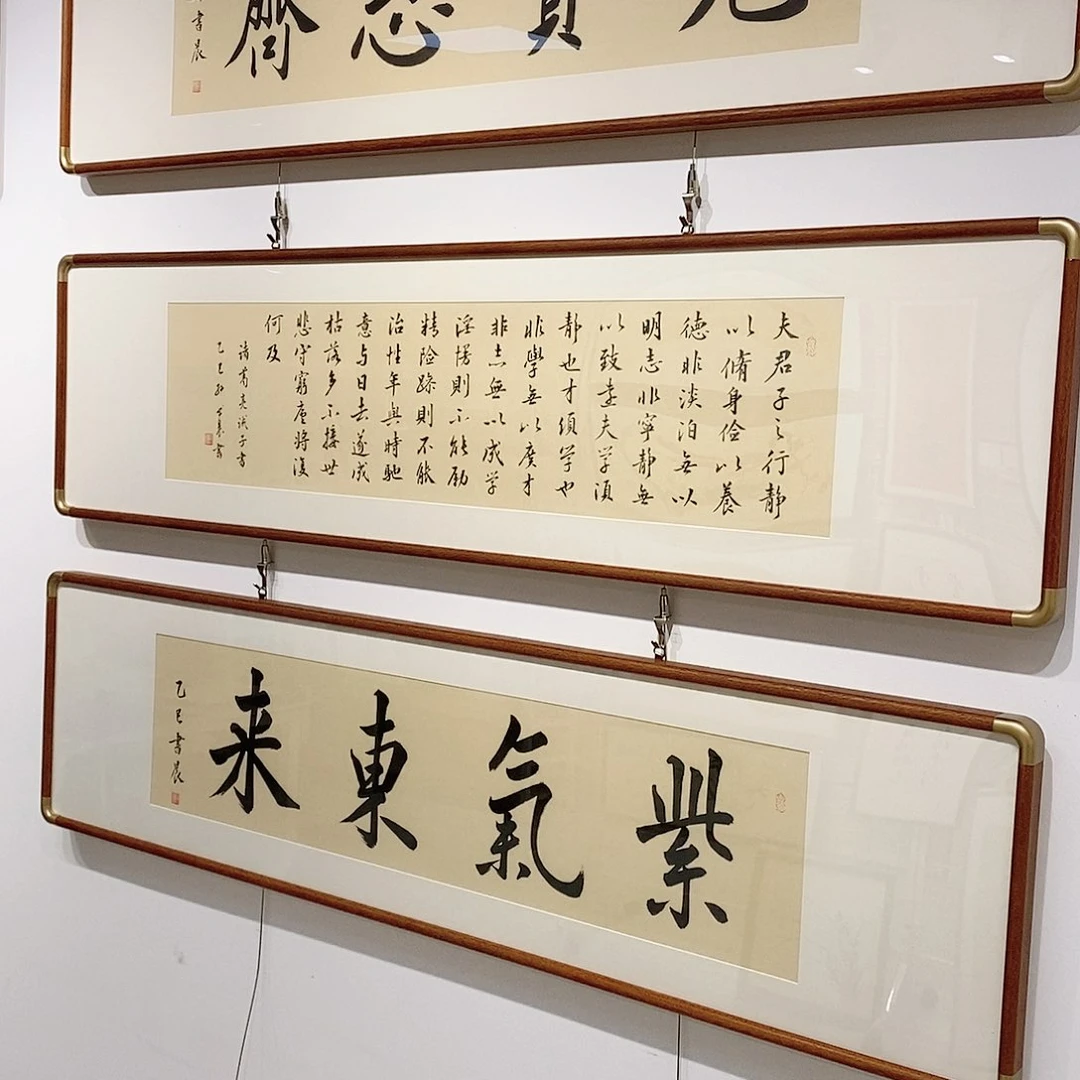 見賢思齊
書晨
夫君子之行静
以脩身俭以養
德非淡泊無以
明志非寧静無
以致遠夫学須
静也才須学也
非學無以廣才
非志無以成学
淫慢則不能励
精险躁則不能
治性年與時馳
意与日去遂成
枯落多不接世
悲守窮廬將復
何及
諸葛亮诫子書
乙巳 晨書
紫氣東来
乙巳書晨